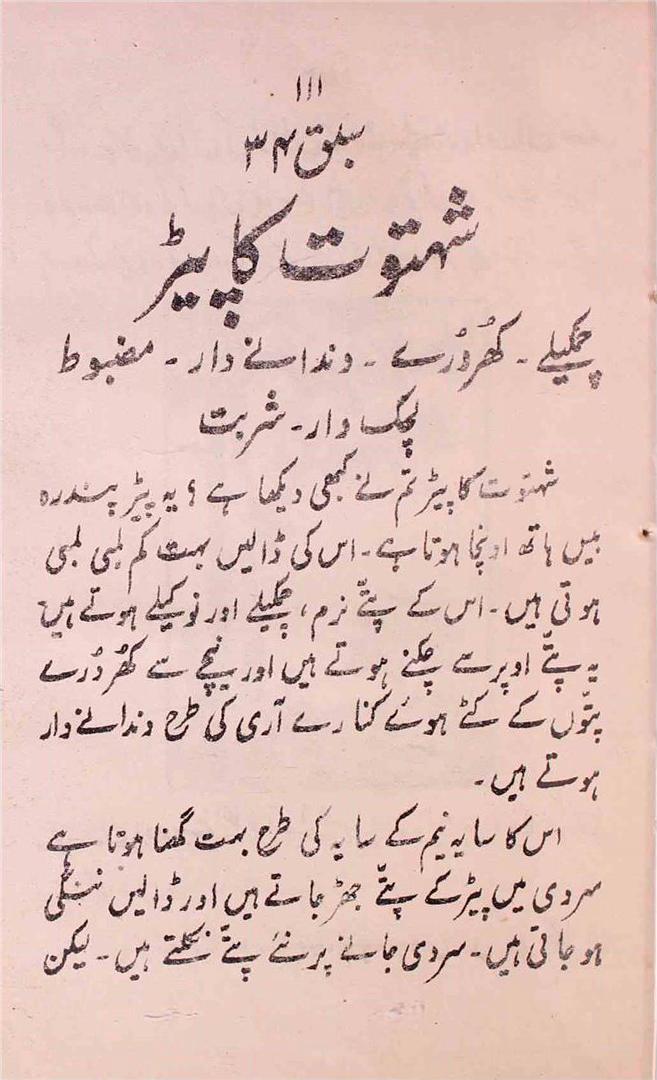 ۱۱۱
سبق ۳۴
شہتوت کا پیڑ
چمکیلے ۔ کھُردُرے ۔ دندانے دار ۔ مضبوط
لچک دار ۔ شربت
شہتوت کا پیڑ تم نے کبھی دیکھا ہے ؟ یہ پیڑ پندرہ
بیس ہاتھ اونچا ہوتا ہے ۔ اس کی ڈالیں بہت کم لمبی لمبی
ہوتی ہیں ۔ اس کے پتّے نرم ، چمکیلے اور نوکیلے ہوتے ہیں
یہ پتّے اوپر سے چکنے ہوتے ہیں اور نیچے سے کھُردُرے
پتّوں کے کٹے ہوئے کنارے آری کی طرح دندانے دار
ہوتے ہیں ۔
اس کا سایہ نیم کے سایہ کی طرح بہت گھنا ہوتا ہے
سردی میں پیڑ کے پتّے جھڑ جاتے ہیں اور ڈالیں ننگی
ہو جاتی ہیں ۔ سردی جانے پر نئے پتّے نکلتے ہیں ۔ لیکن